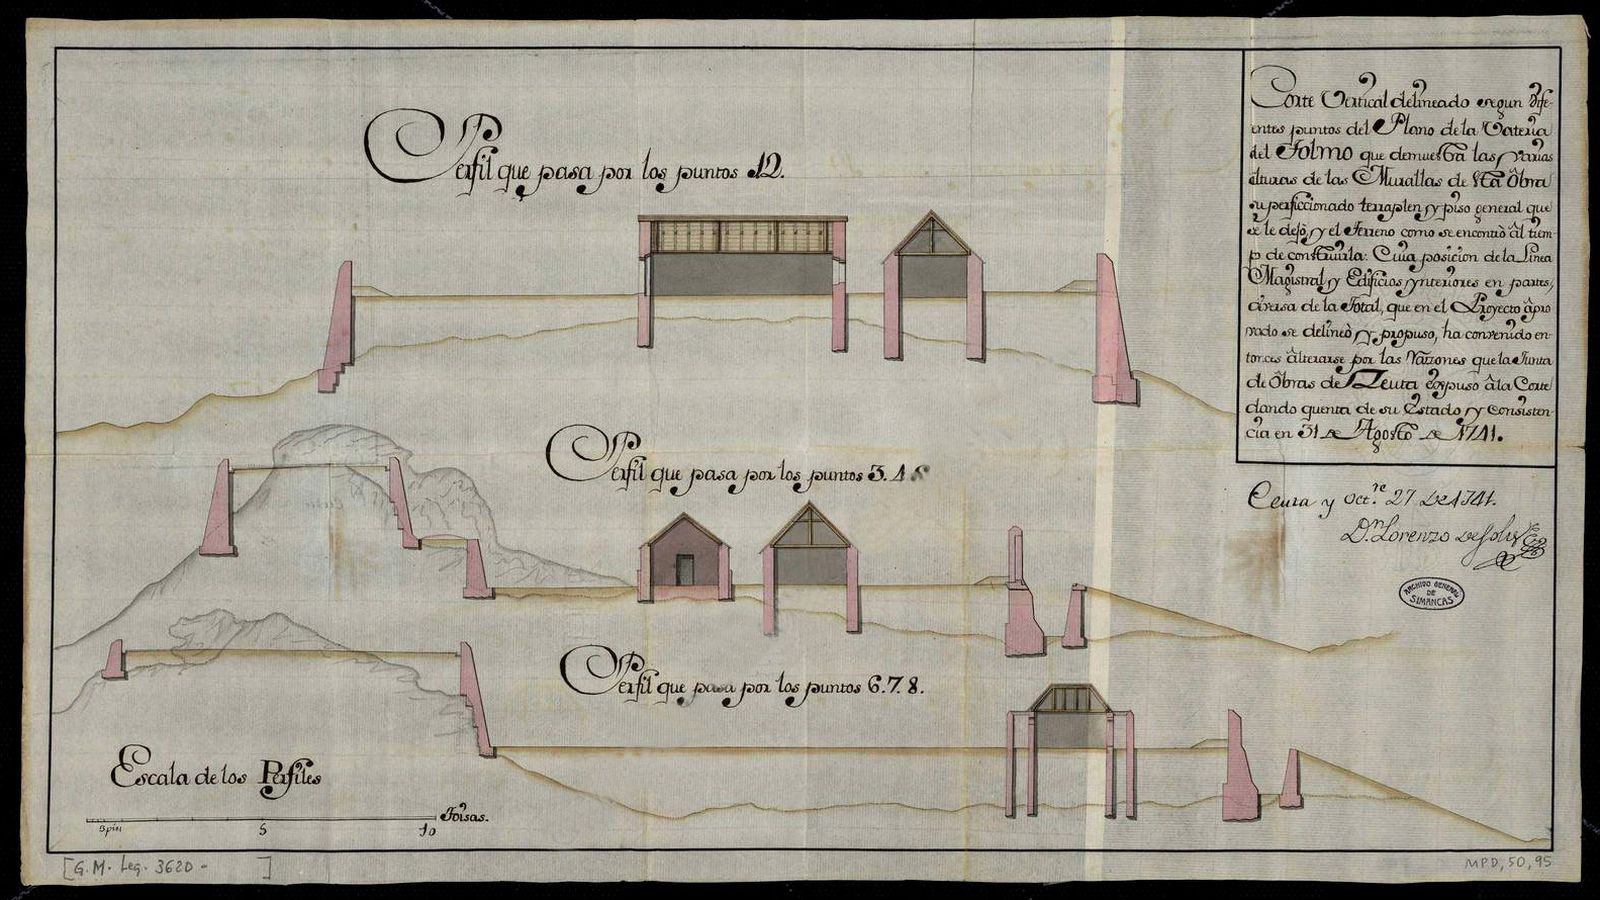 Perfil que pasa por los puntos 12.
Corte Vertical delineado segun dife-
rentes puntos del Plano de la Vateria
del Tolmo que demuestra las varias
alturas de las Murallas de esta Obra
superficcionado terraplen y piso general que
se le dejò, y el Terreno como se encontrò âl tiem-
po de construirla: Cuia posicion de la Linea
Magistral, y Edificios ynteriores en partes,
diversa de la Total, que en el Proyecto âpro
vado se delineò, y propuso, ha convenido en-
tonces âlterarse por las Razones que la Junta
de Ôbras de Zeuta expuso â la Corte
dando quenta de su Estado, y Consisten-
cia en 31 de Agosto de 1741.
Perfil que pasa por los puntos 3. 4
Ceuta y Oct.re 27 de 1741.
Dn. Lorenzo de Solis
ARCHIVO GENERAL
DE
SIMANCAS
Perfil que pasa por los puntos 6. 7. 8.
Escala de los Perfiles
3 pies 5 10 Toisas.
[G. M. Leg. 3620 - ]
MPD, 50, 95